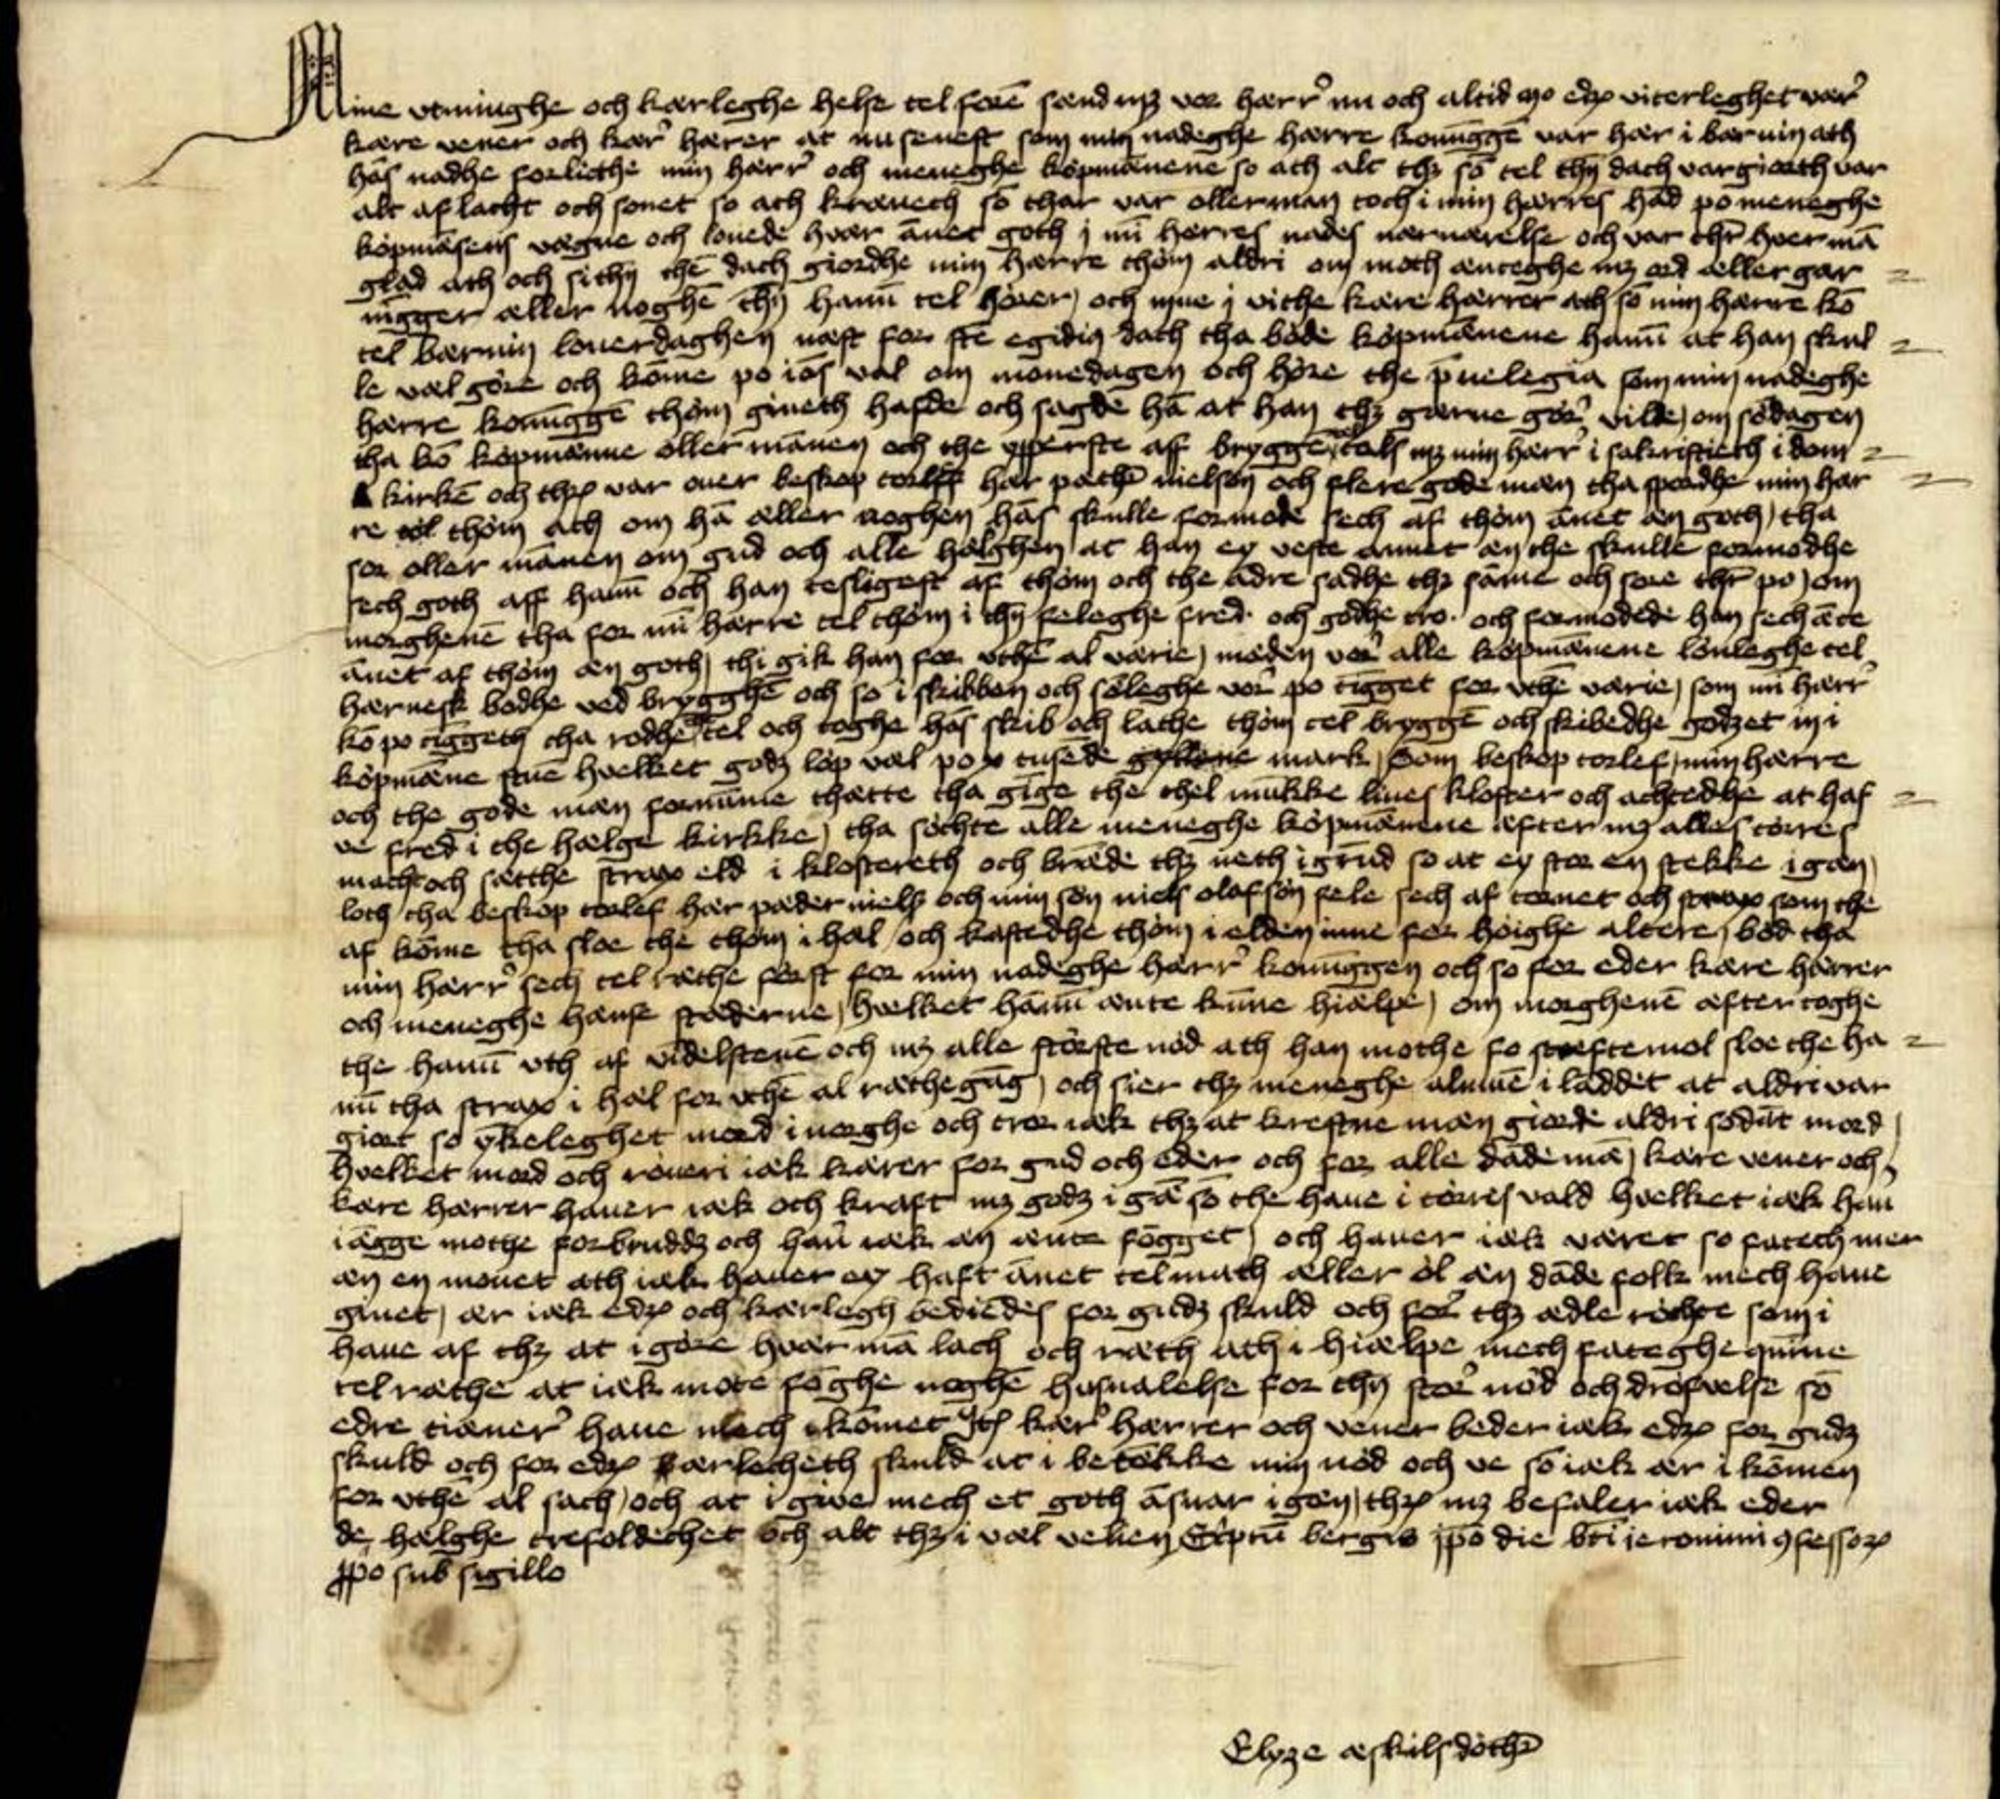 Mine vtminghe och kærleghe helse tel foren send mz vor hærræ nu och altid mo eder viterleghet varæ
kære vener och kæræ hærer at nu senest som min nadeghe hærre konūggē var hær i bærvin ath
hās nadhe forlicthe min hærræ och meneghe køpmānene so ath alt thz sō tel thn̄ dach var giørth var
alt aflacht och sonet so ath krævech sō thær var ollerman toch i min hærres hād po meneghe
køpmāsens vægne och louede hvar ānet goth j mī hærres nades nærværelse och var thr̄ hver mā
glad ath och sithn̄ thē dach giordhe min hærre thøm aldri om moth ænteghe mz ord æller gær
nīgger æller noghē thn̄ hanū tel hører och mue j vithe kære hærrer ath sō min hærre kō
tel bærvin louerdaghen næst for ste egidij dach tha bøde køpmānene hanū at han skul
le væl gøre och kōme po iōs val om monedagen och høre the puelegia som min nadeghe
hærre konūggē thøm giueth hafde och sagde hā at han thz gærne gøræ vilde om sōdagen
tha kō køpmænne ollermānen och the ypperste af bryggē tals mz min hærræ i sakristieth i dom
kirkē och thr var ouer beskop torlef hær pæthr nielsøn och flere gode mæn tha spordhe min hær
re tel thøm ath om hā æller noghen hās skulle formode sech af thøm ānet æn goth tha
sor oller mānen om gud och alle hælghen at han ey veste annet æn the skulle formodhe
sech goth aff hanū och han tesligest af thøm och the ādre sadhe thz sāme och sore thr̄ po om
morghenē tha for mī hærre tel thøm i thn̄ feleghe fred och godhe tro och formodede han sech æte
ānet af thøm æn goth thi gik han for vthē al værie mæden voræ alle køpmānene lønleghe tel
hærnesk bodhe ved brygghē och so i skibben och søleghe voræ po tīgget for vthē værie som mī hærræ
kō po tīggeth tha rodhe the tel och toghe hās skib och lathe thøm tel bryggē och skibedhe godzet in i
køpmāne stue hvelket godz løp væl po x tusēde gyllene mark Som beskop torlef min hærre
och the gode mæn fornūme thætte tha gīge the thel mūkke liues kloster och achtedhe at haf
ve fred i the hælge kirkke tha søchte alle meneghe køpmānene æfter mz alles tørres
macht och sætthe strax eld i klostereth och brænde thz neth i grūd so at ey stor en stekke igæn
loth tha beskop torlef hær pæder niels och min søn niels olafsøn fele sech af tornet och strax som the
af kōme tha sloe the thøm i hæl och kastedhe thøm i elden inne for høighe altere bød tha
min hærræ sech tel ræthe først for min nadeghe hærræ konūggen och so for eder kære hærrer
och meneghe hænse stæderne hvelket hānū ænte kūne hiælpe om morghenē æfter toghe
the hanū vth af vīdelstenē och mz alle største nød ath han mothe fo skrefte mol sloe the ha
nū tha strax i hæl for vthē al ræthegāg och sier thz meneghe almuē i lāddet at aldri var
giort so ykeleghet mord i norghe och tror iæk thz at krestne mæn giorde aldri sodāt mord
hvelket mord och røueri iæk kærer for gud och eder och for alle dādemā kære vener och
kære hærrer hauer iæk och kraft mz godz i gæ sō the haue i tørres vald hvelket iæk hau
i āgge mothe forbruddz och hau iæk æn ænte fōgget och hauer iæk været so fatech mer
æn en monet ath iæk hauer ey haft ānet tel math æller øl æn dāde folk mech haue
giuet ær iæk eder och kærlegh bediēdes for gudz skuld och foræ thz ædle røchte som i
haue af thz at i gøre hvar mā lach och ræth ath i hiælpe mech fateghe qūne
tel ræthe at iæk mote fōghe noghē husualelse for thn̄ storæ nød och drøfvelse sō
edre tiæneræ haue mech i kōmet Itē kæræ hærrer och vener beder iæk eder for gudz
skuld och for eder kærlecheth skuld at i betēkke min nød och ve sō iæk ær i kōmen
for vthē al sach och at i giue mech et goth āsuar igæn thr mz befaler iæk eder
de hælghe trefoldechet och alt thz i væl velien Scriptū bergis ipō die bti ieronimi ꝯfessor
mpo sub sigillo
Elyze æskilsdothr̄